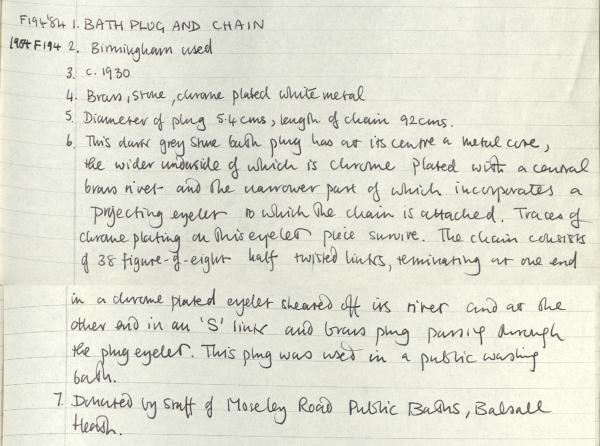 F194'84 1. BATH PLUG AND CHAIN
1984 F194 2. Birmingham used
3. c. 1930
4. Brass, stone, chrome plated white metal
5. Diameter of plug 5.4 cms, length of chain 92 cms.
6. This dark grey stone bath plug has at its centre a metal core,
the wider underside of which is chrome plated with a central
brass rivet and the narrower part of which incorporates a
projecting eyelet to which the chain is attached. Traces of
chrome plating on this eyelet piece survive. The chain consists
of 38 figure-of-eight half twisted links, terminating at one end
in a chrome plated eyelet sheared off its rivet and at the
other end in an 'S' link and brass ring passing through
the plug eyelet. This plug was used in a public washing
bath.
7. Donated by staff of Moseley Road Public Baths, Balsall
Heath.